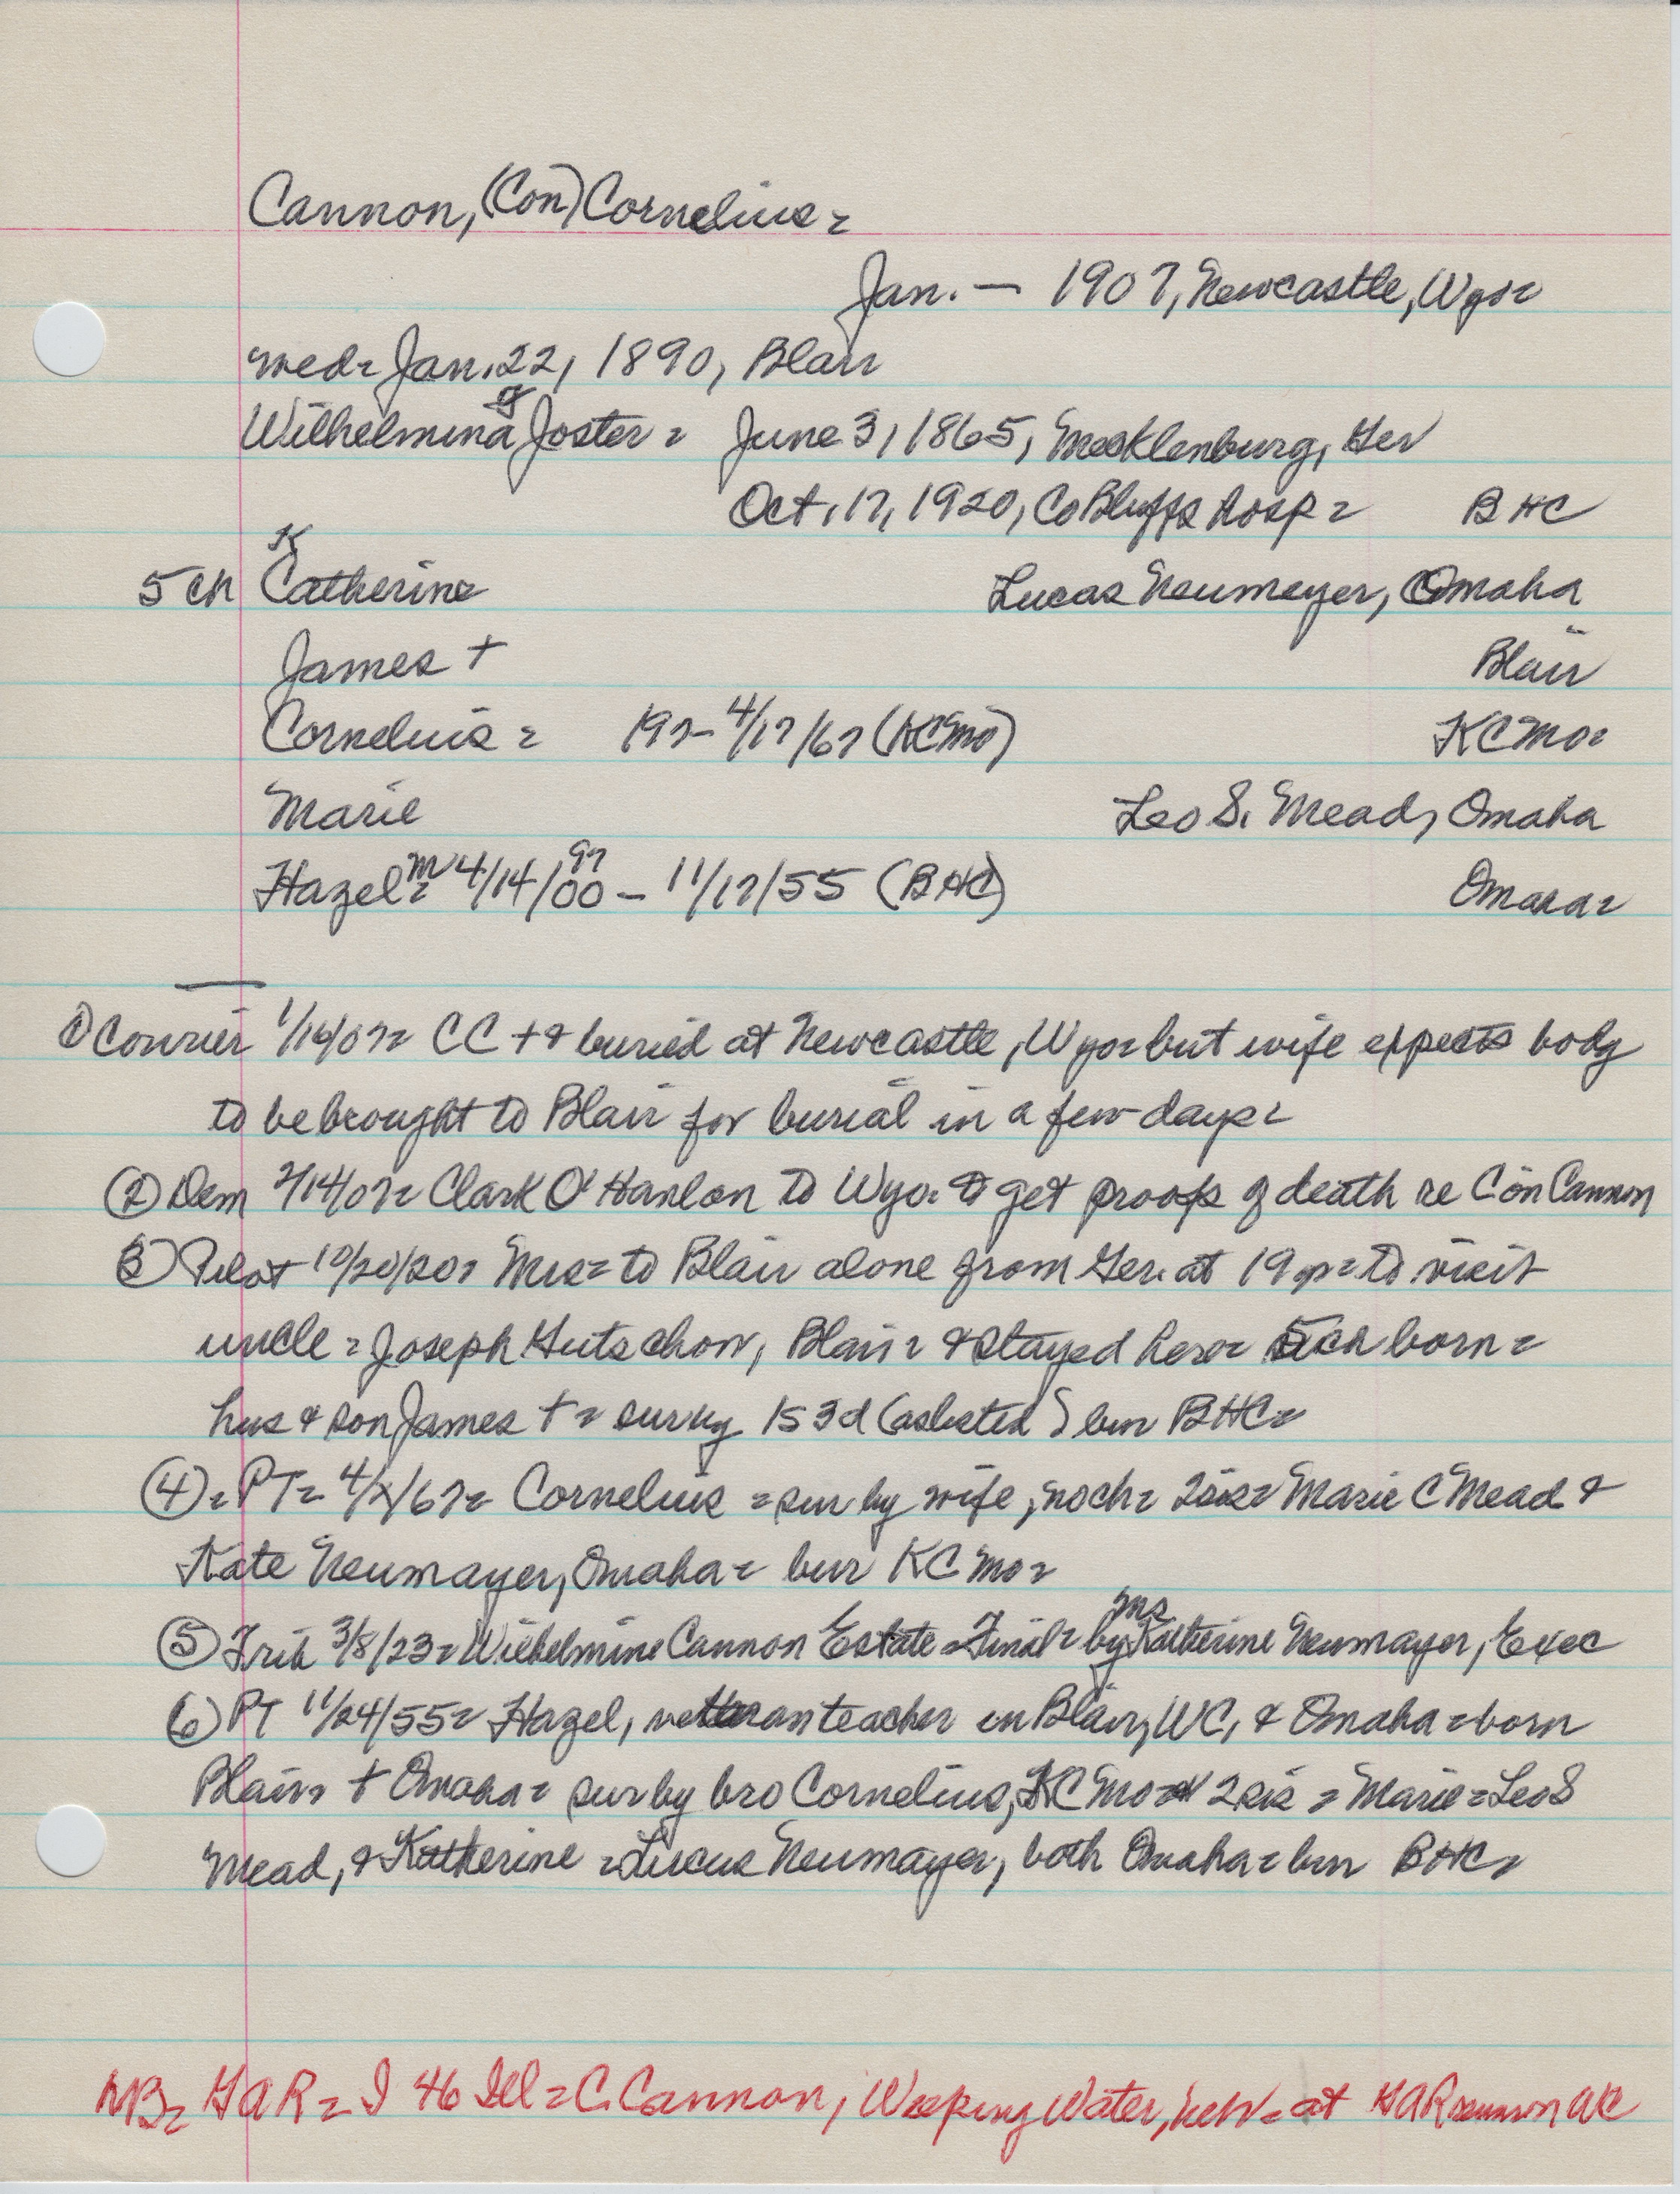 Cannon, (Con) Cornelius =
Jan. — 1907, Newcastle, Wyo =
med = Jan. 22, 1890, Blair
Wilhelmina Joster = June 3, 1865, Mecklenburg, Ger
Oct. 17, 1920, Co Bluffs hosp = BHC
K
5 ch Catherine Lucas Neumeyer, Omaha
James + Blair
Cornelius = 197- 4/17/67 (KCMo) KCMo =
Marie Leo S. Mead, Omaha
97
Hazel M = 4/14/00 – 11/17/55 (BHC) Omaha =
① Courier 1/16/07 = CC + & buried at Newcastle, Wyo = but wife expects body
to be brought to Blair for burial in a few days =
② Dem 2/14/07 = Clark O'Hanlon to Wyo. to get proofs of death re Con Cannon
③ Pilot 10/20/20 = Mrs = to Blair alone from Ger. at 19 = to visit
uncle = Joseph Gutschow, Blair = & stayed here = 5 ch born =
hus & son James + = sur by 1s 3d (as listed) bur BHC =
④ = PT = 4/ /67 = Cornelius = sur by wife, no ch = 2 sis = Marie C Mead &
Kate Neumayer, Omaha = bur KC Mo =
Mrs
⑤ Trib 3/8/23 = Wilhelmine Cannon Estate = Final = by Katherine Neumayer, Exec
⑥ PT 11/24/55 = Hazel, veteran teacher in Blair, WC, & Omaha = born
Blair = + Omaha = sur by bro Cornelius, KC Mo = & 2 sis = Marie = Leo S
Mead, & Katherine = Lucus Neumayer, both Omaha = bur BHC =
NB = GAR = I 46 Ill = C. Cannon, Weeping Water, Neb = at GAR reunion WC